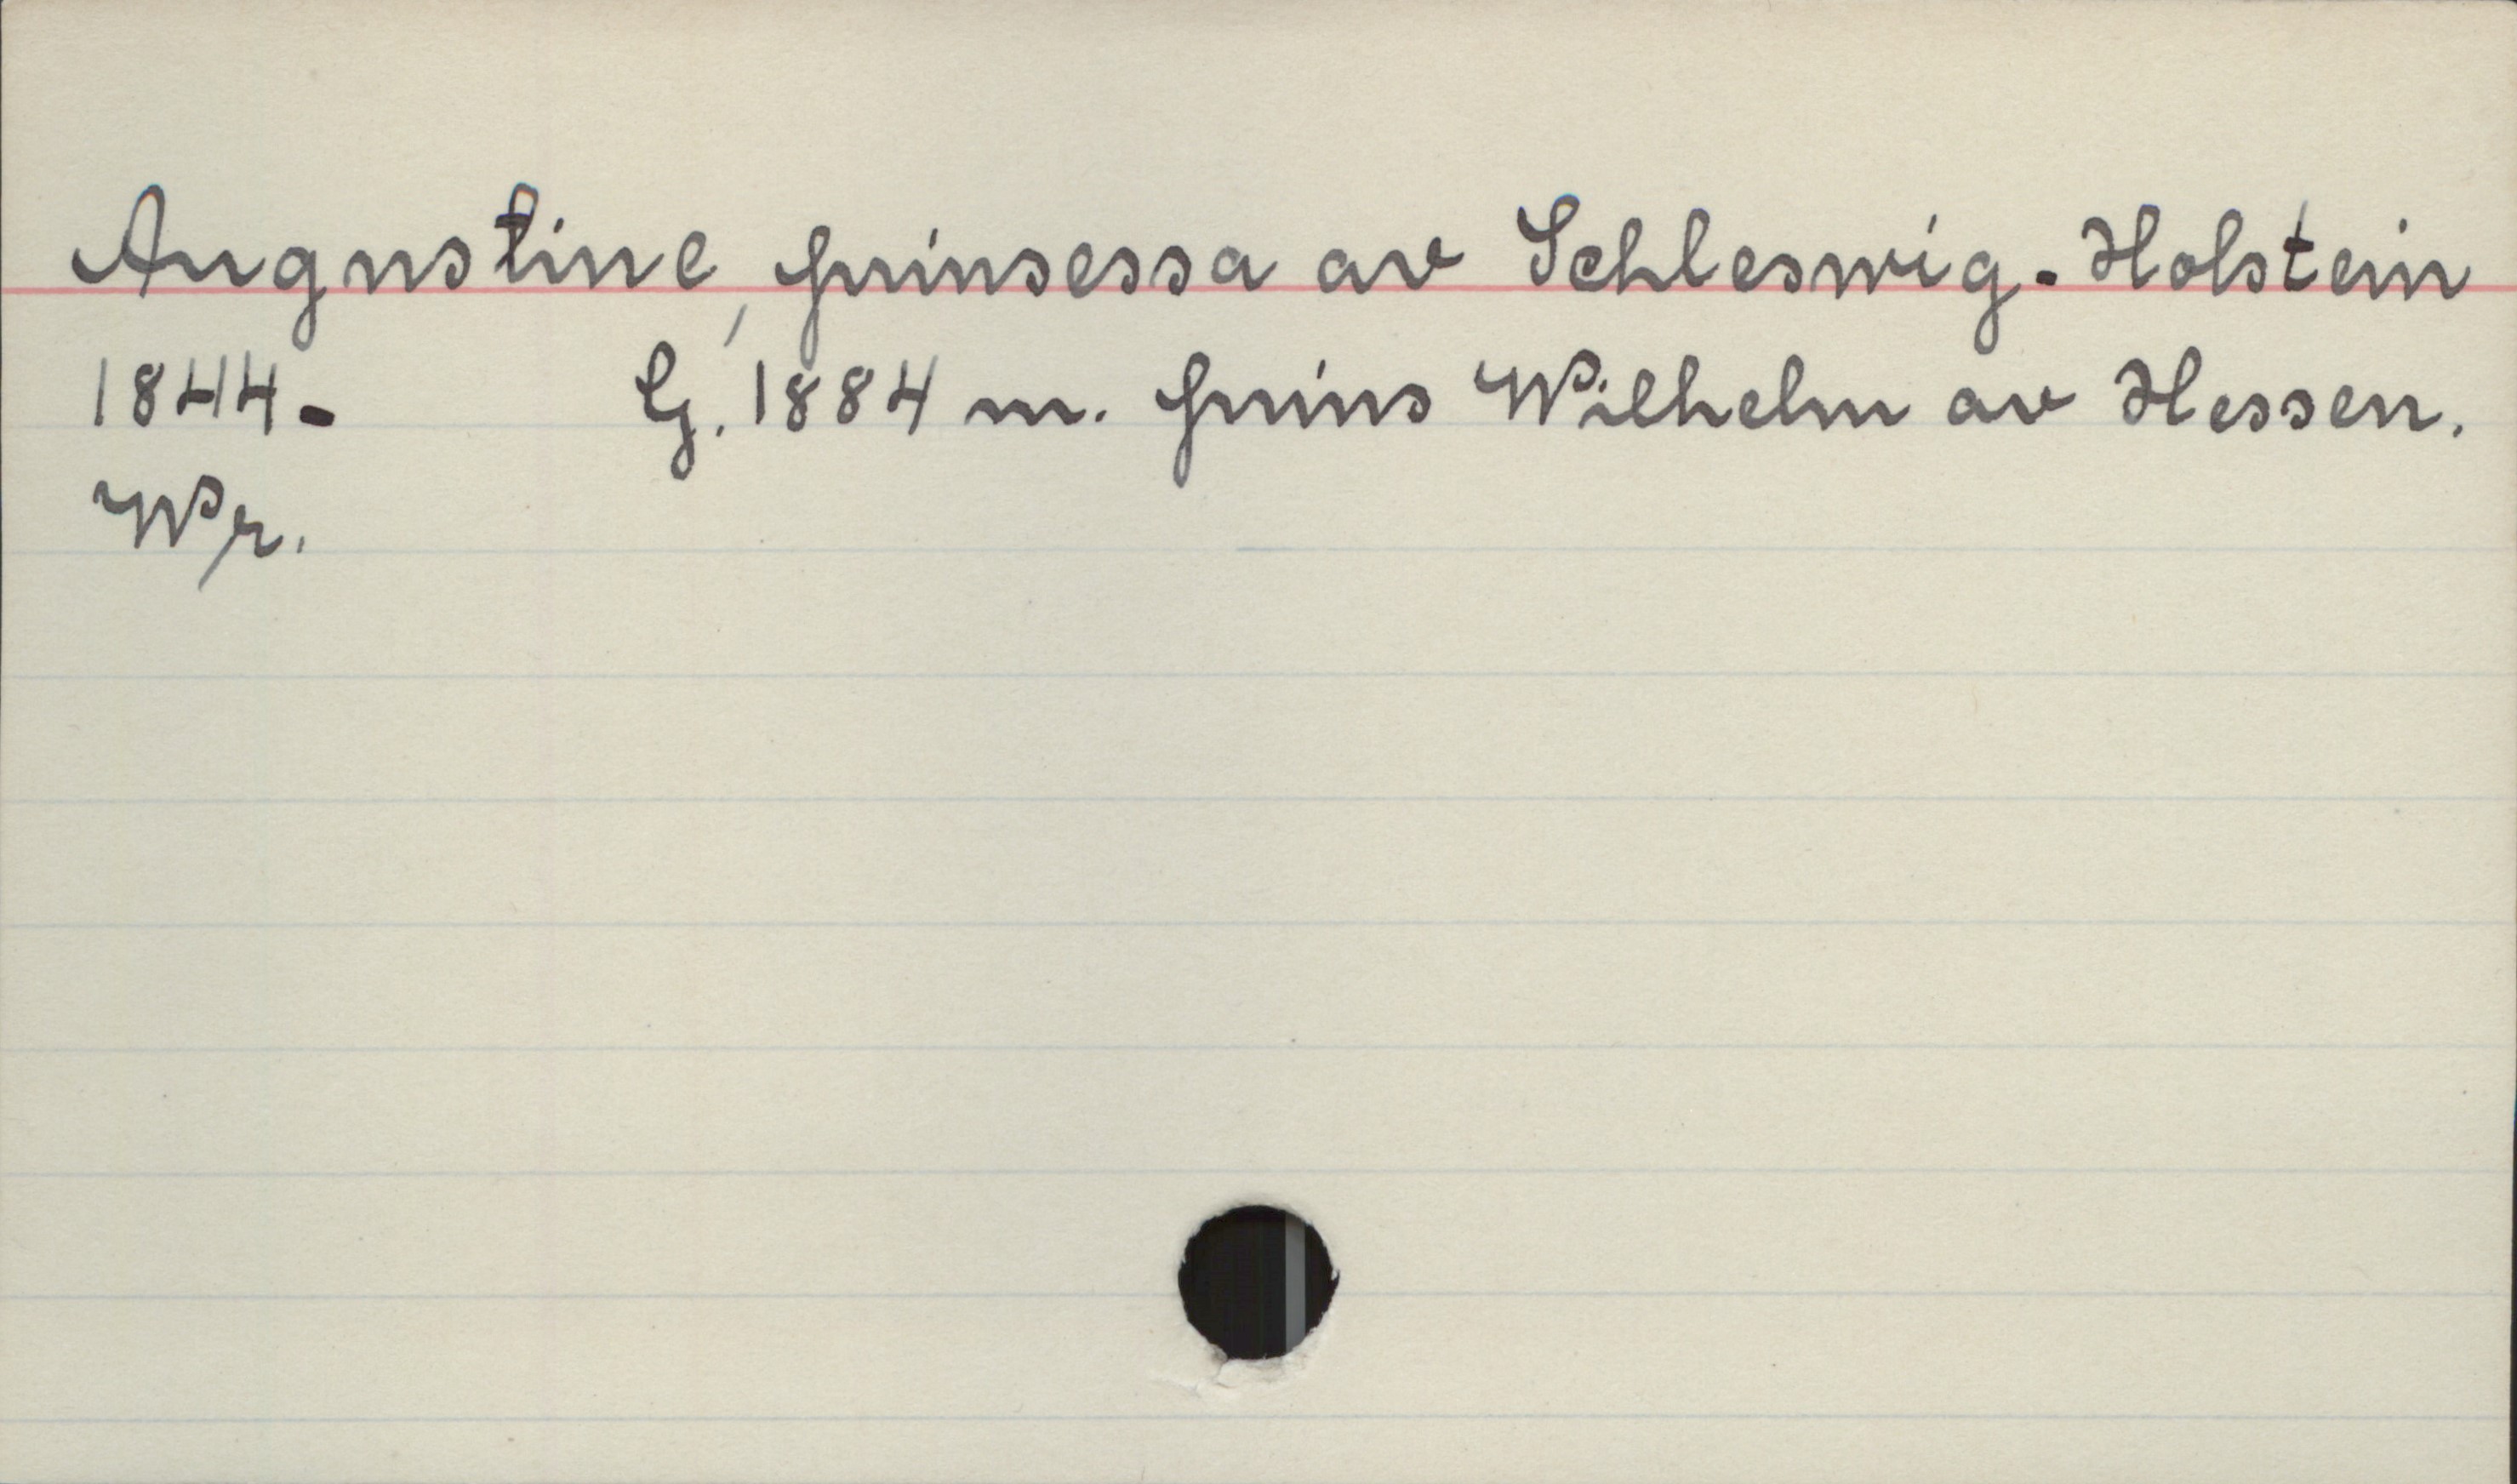 Augustine, prinsessa av Schleswig-Holstein
1844- G. 1884 m. prins Wilhelm av Hessen.
Wr.